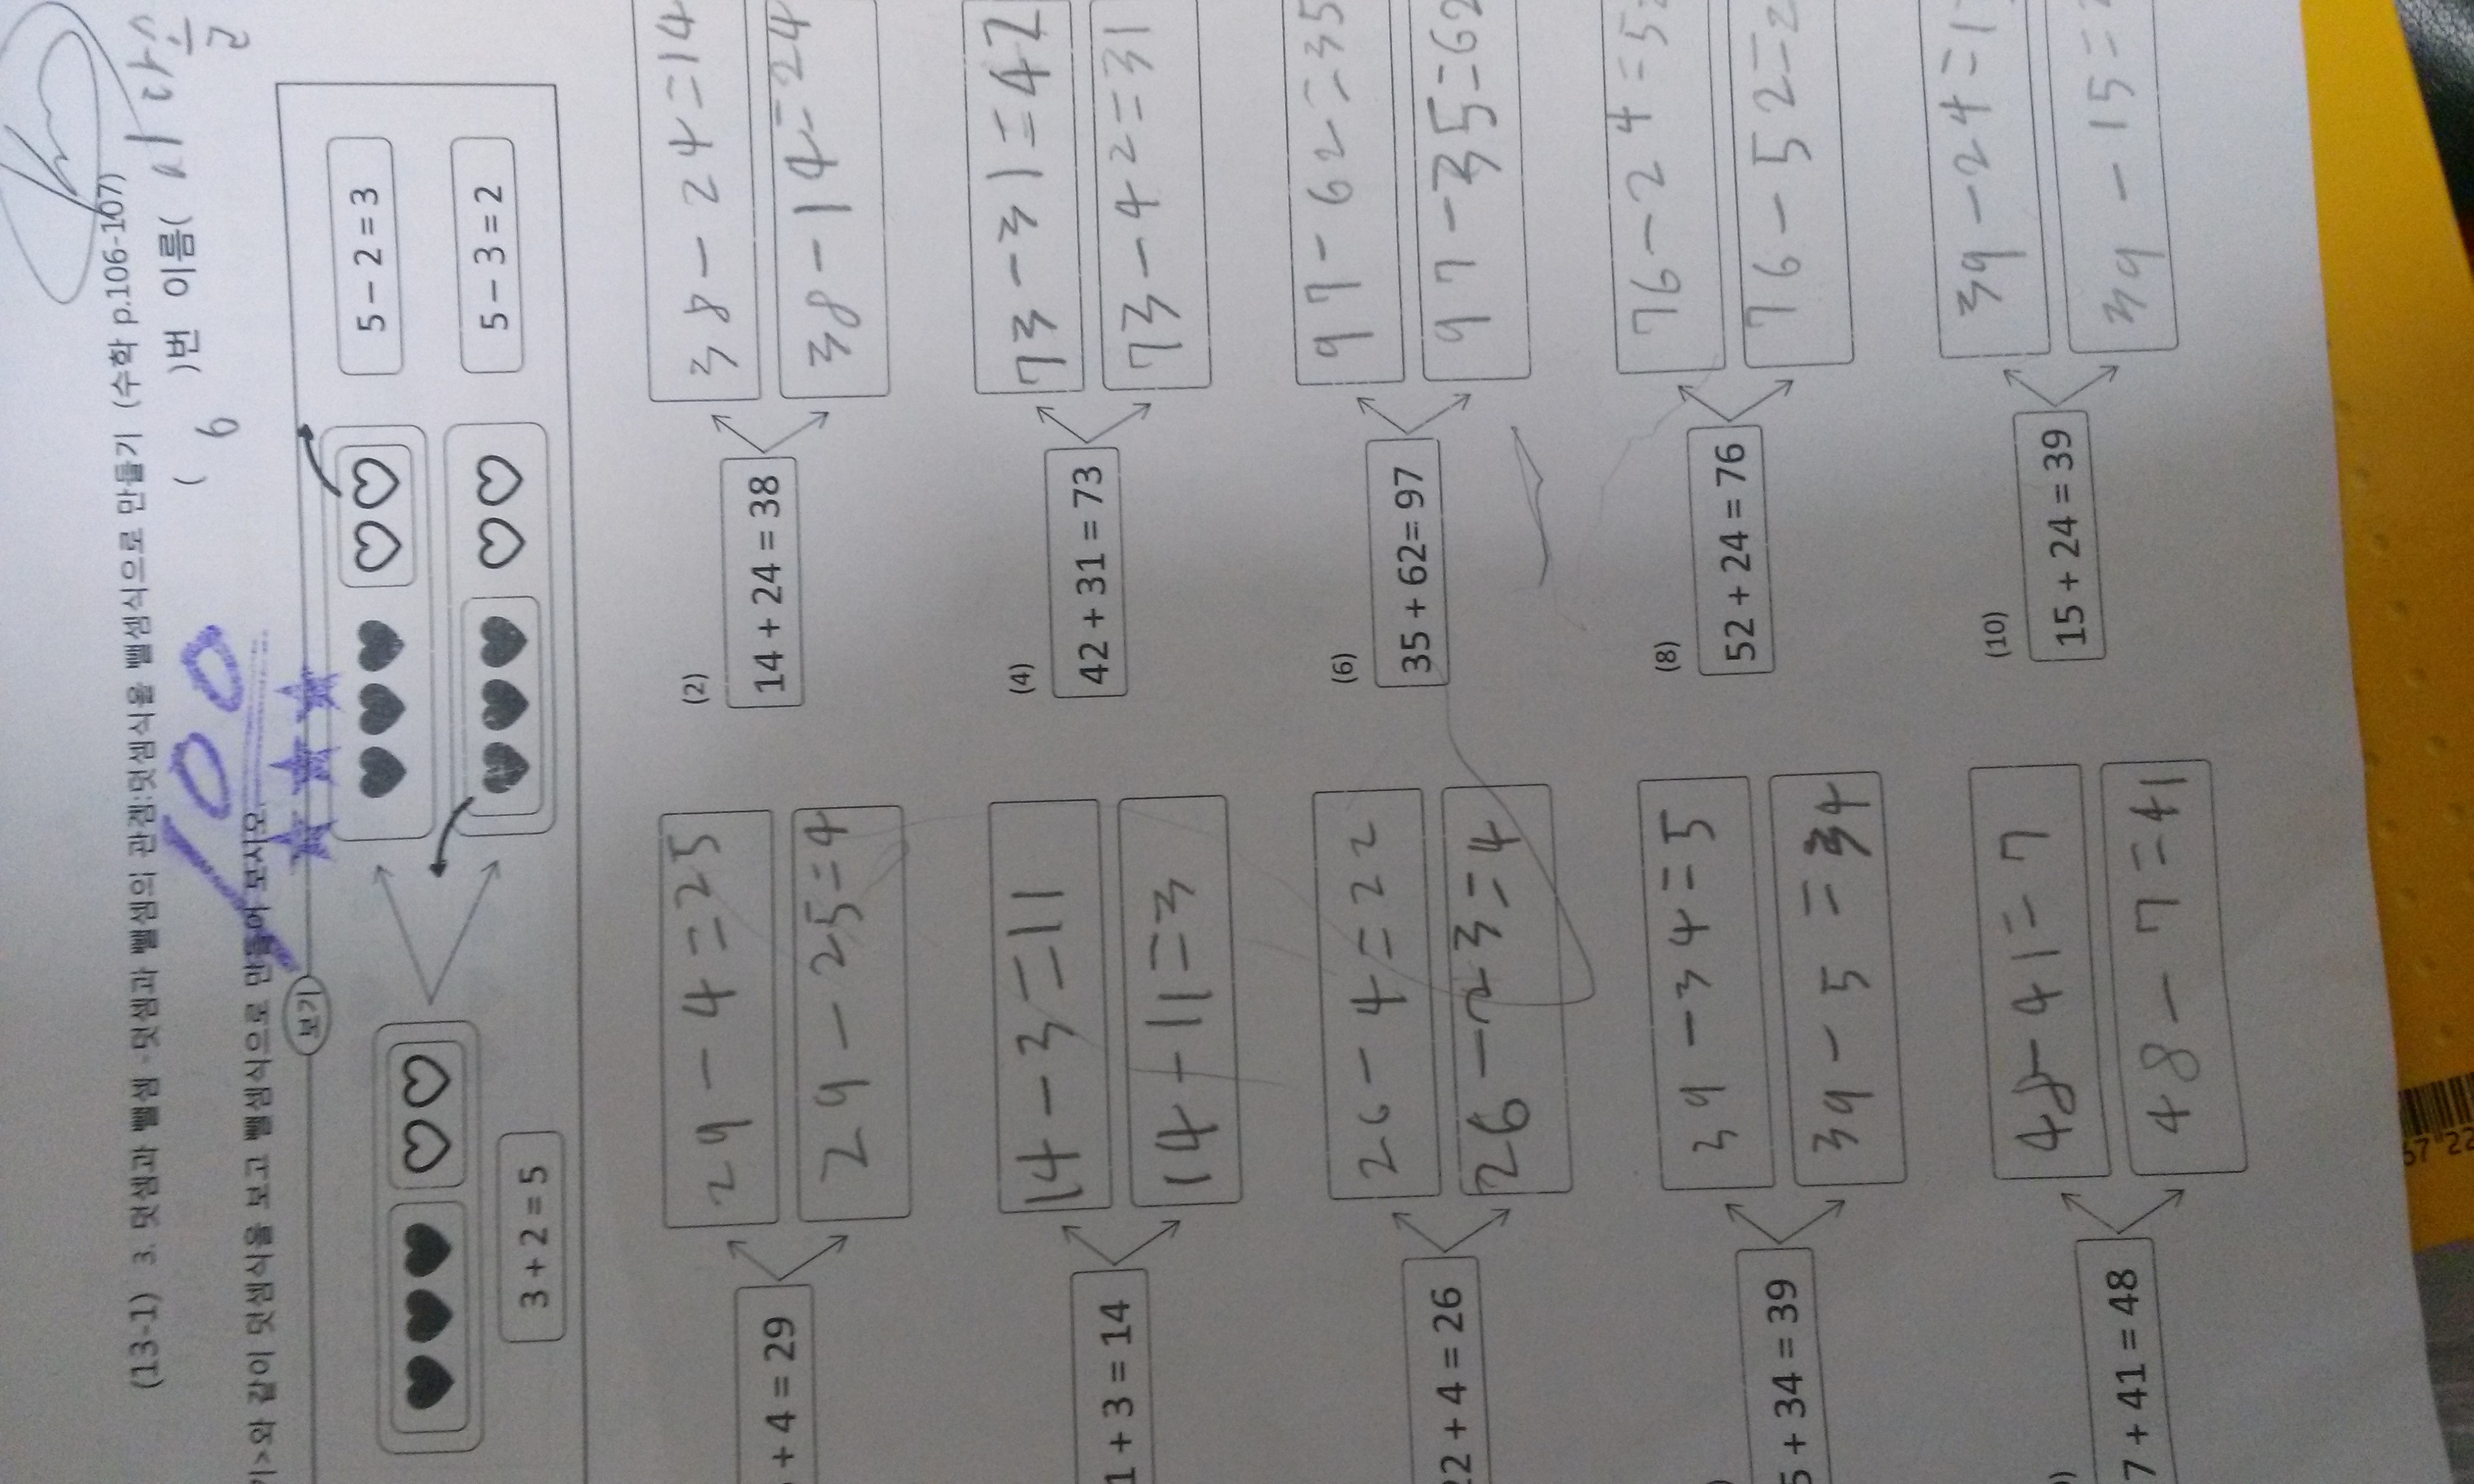 (13-1) 3. 덧셈과 뺄셈 -덧셈과 뺄셈의 관계:덧셈식을 뺄셈식으로 만들기 (수학 p.106-107)
( 6 )번 이름(
100
기>와 같이 덧셈식을 보고 뺄셈식으로 만들어 보시오.
보기
3 + 2 = 5
5 - 2 = 3
5 - 3 = 2
+ 4 = 29
29 - 4 = 25
29 - 25 = 4
(2)
14 + 24 = 38
38 - 24 = 14
38 - 14 = 24
1 + 3 = 14
14 - 3 = 11
14 - 11 = 3
(4)
42 + 31 = 73
73 - 31 = 42
73 - 42 = 31
22 + 4 = 26
26 - 4 = 22
(6)
35 + 62= 97
97 - 62 = 35
97 - 35 = 62
5 + 34 = 39
39 - 34 = 5
39 - 5 = 34
(8)
52 + 24 = 76
76 - 24 = 5
76 - 52 = 2
7 + 41 = 48
48 - 41 = 7
48 - 7 = 41
(10)
15 + 24 = 39
39 - 24 = 1
39 - 15 =
67 22